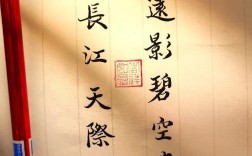 遠影碧空
長江天際